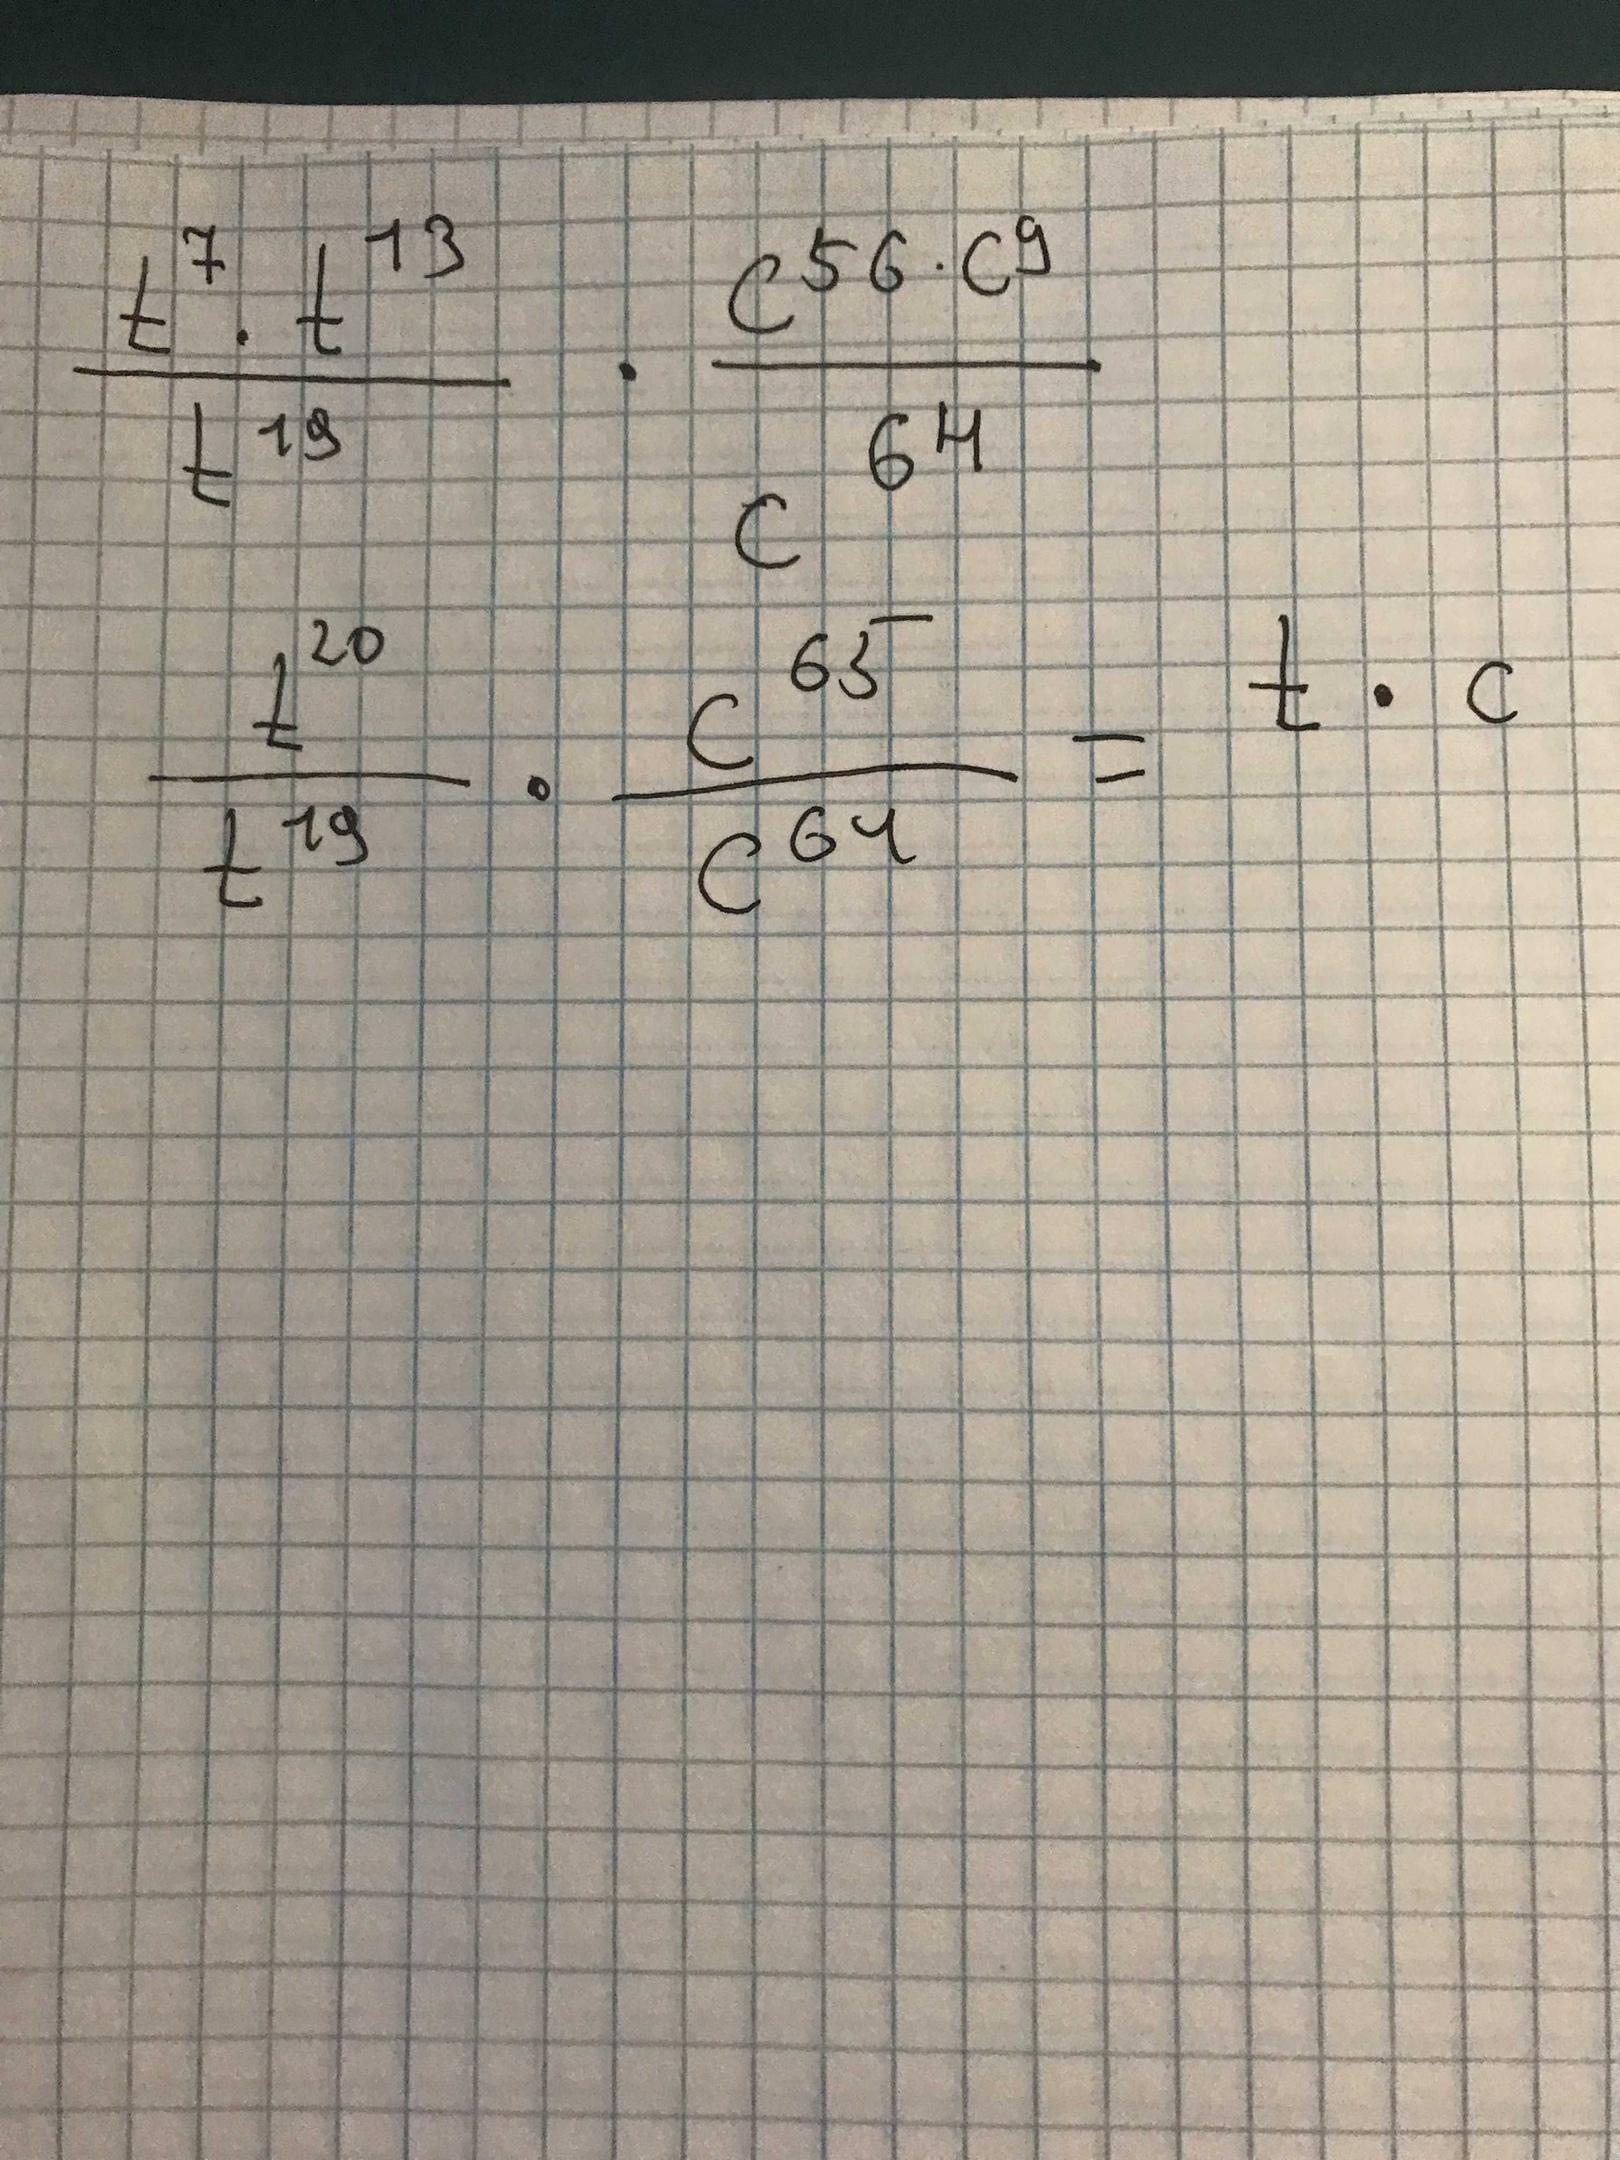 t⁷ · t¹³ / t¹⁹ · c⁵⁶ · c⁹ / c⁶⁴
t²⁰ / t¹⁹ · c⁶⁵ / c⁶⁴ = t · c